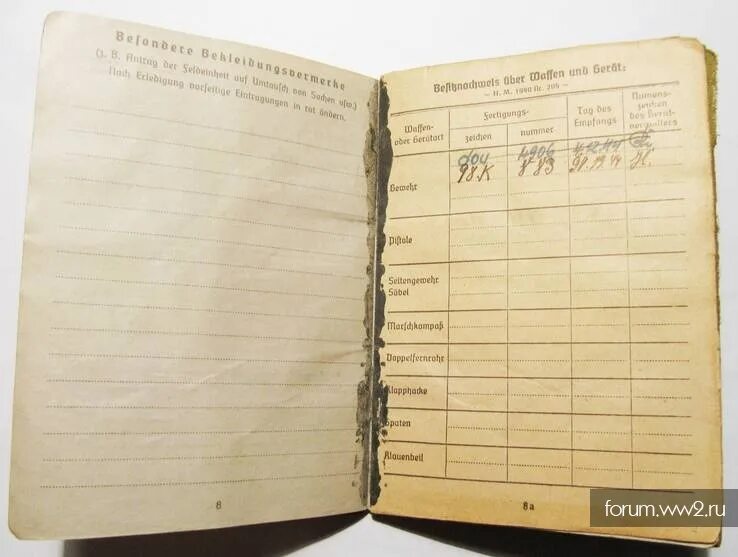 Besondere Bekleidungsvermerke
(z. B. Antrag der Feldeinheit auf Umtausch von Sachen usw.)
Nach Erledigung vorseitige Eintragungen in rot ändern.
8
Besitznachweis über Waffen und Gerät:
— H. M. 1940 Nr. 205 —
Waffen-
oder Gerätart
Fertigungs-
zeichen
nummer
Tag des
Empfangs
Namens-
zeichen
des Gerät-
verwalters
Gewehr
dou 4906
98.K 883
Pistole
Seitengewehr
Säbel
Marschkompaß
Doppelfernrohr
Klapphacke
Spaten
Klauenbeil
8a
forum.ww2.ru